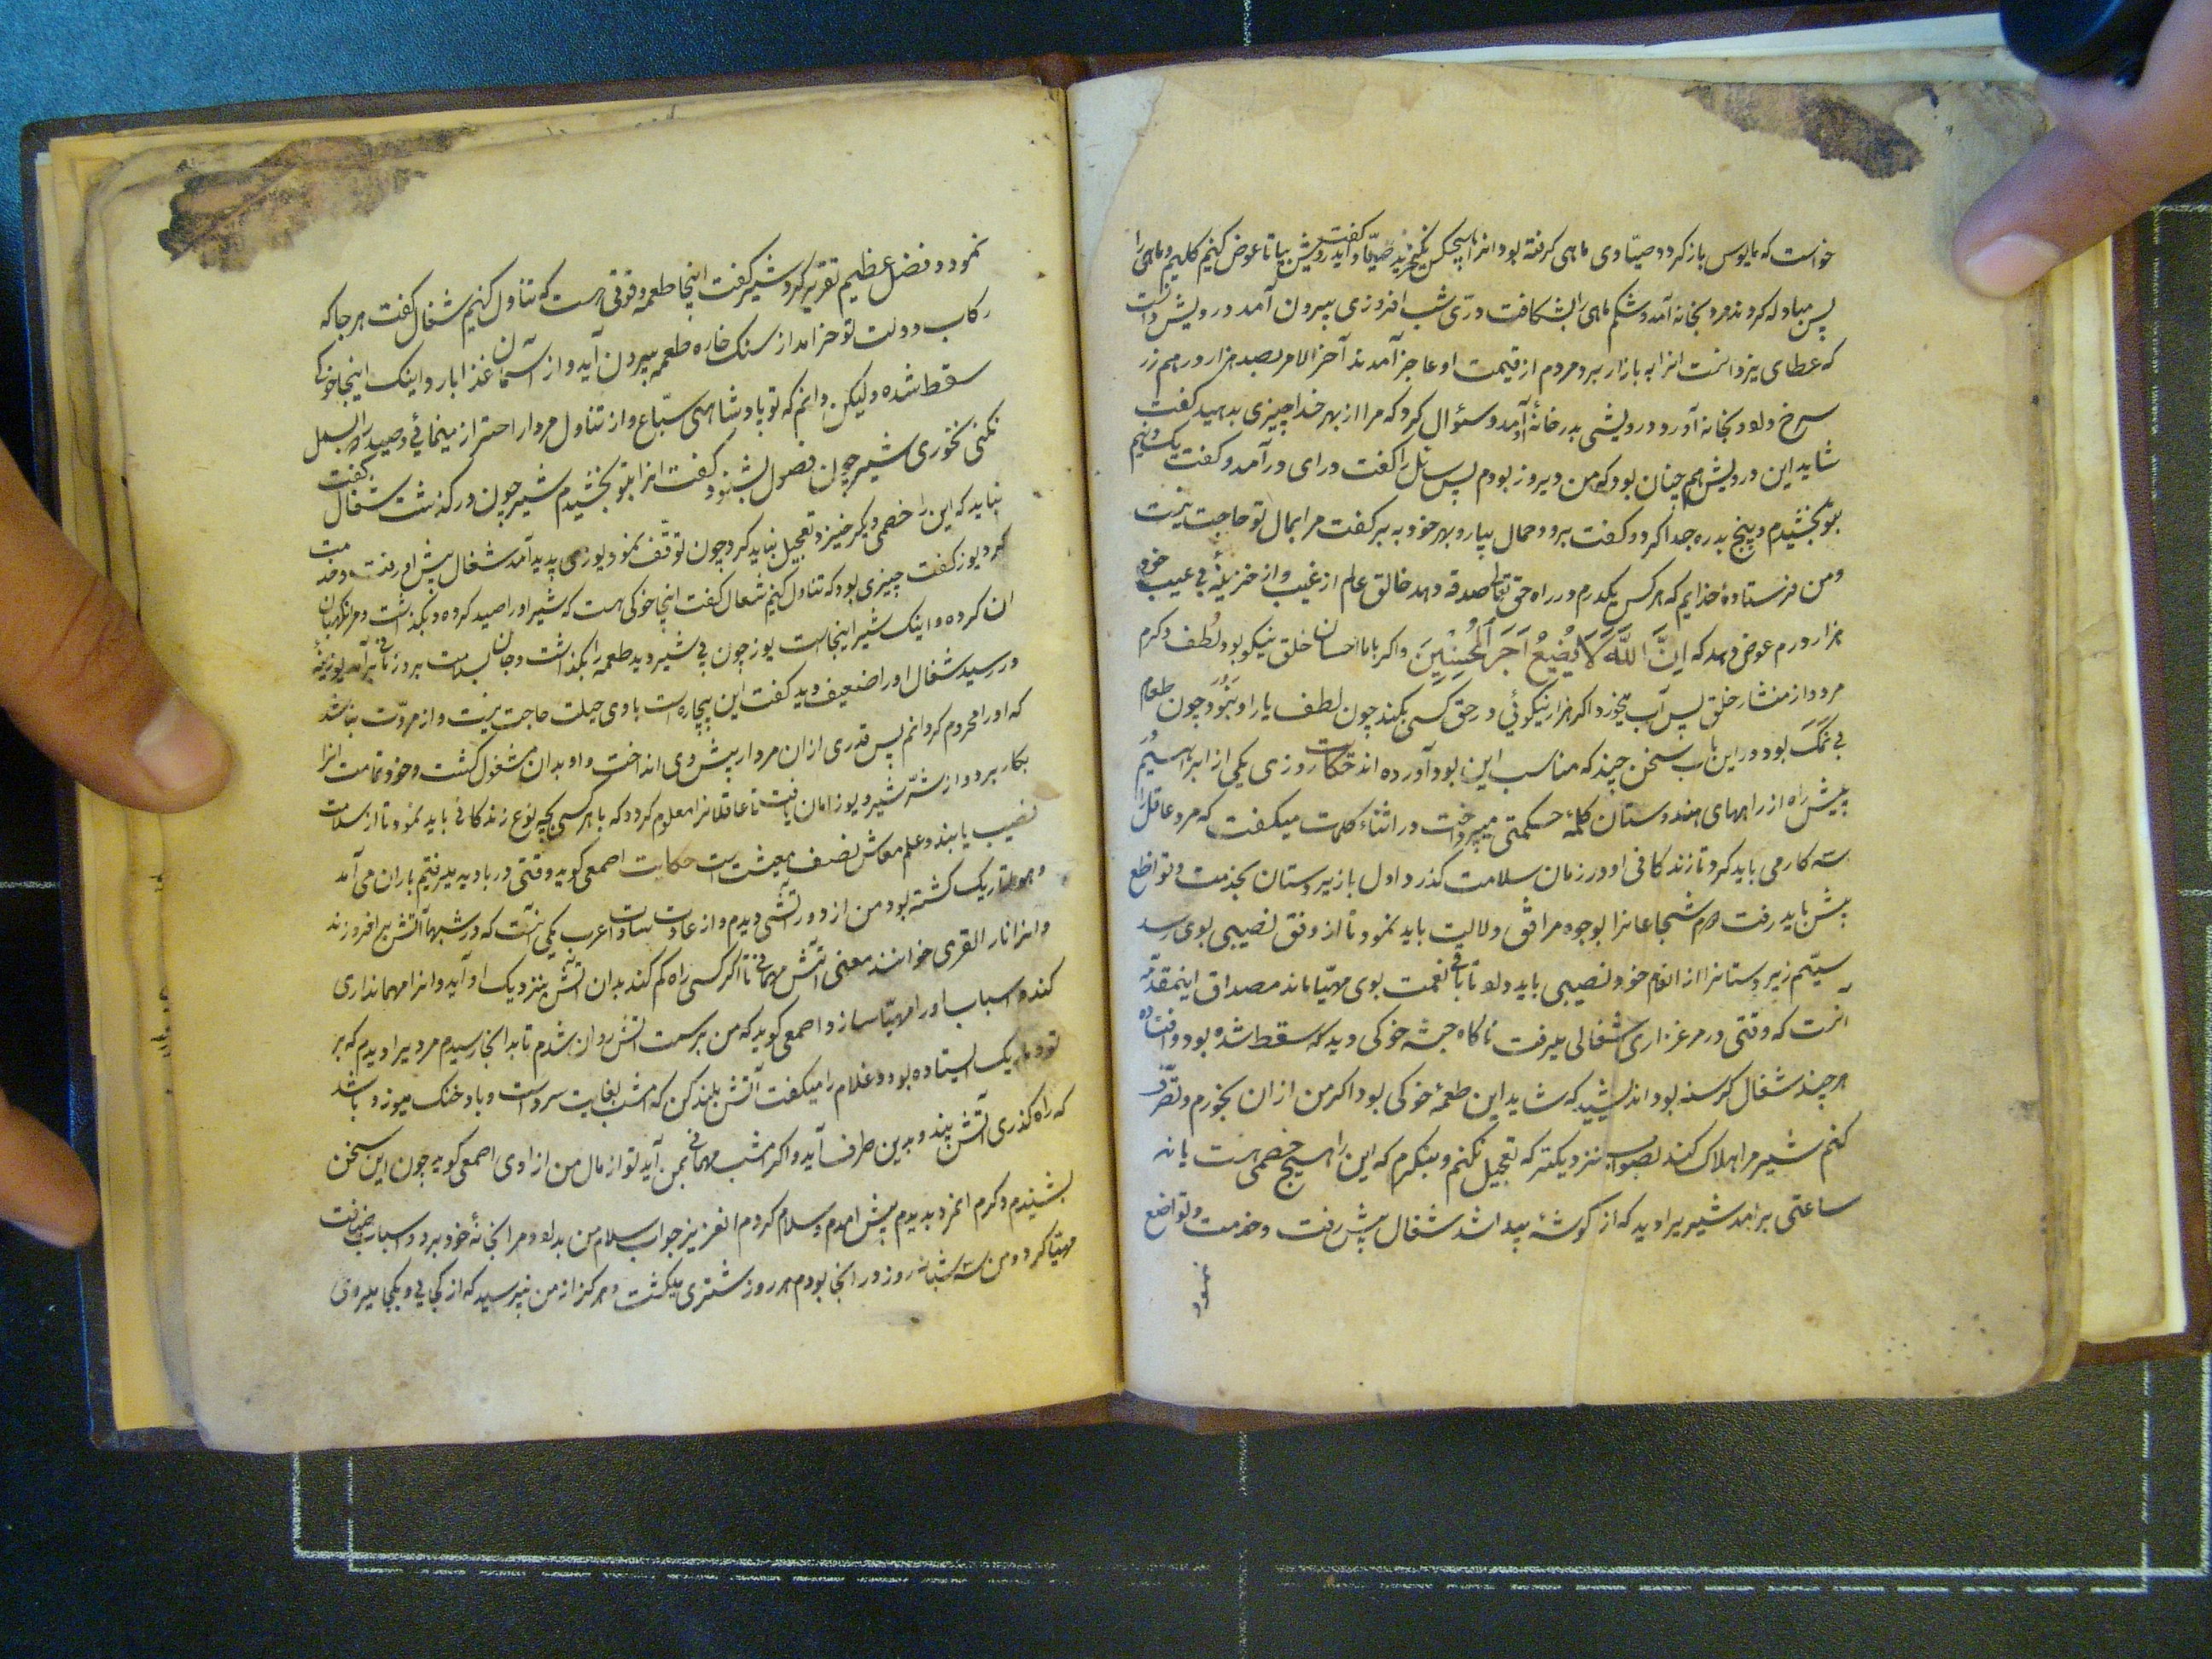 خواست که مایوس بازکردد صیّادی ماهی کرفته بود و انرا هیچکس نمیخرید صیّاد کفت ای درویش بیا تا عوض کنیم کلیم و ماهی را
پس مبادله کردند مرد بخانه آمد و شکم ماهی را بشکافت درّی شب افروزی بیرون آمد درویش دانست
که عطای یزدانست انرا به بازار برد مردم از قیمت او عاجز آمدند آخر الامر بصد هزار درهم زر
سرخ داد و بخانه آورد درویشی بدر خانهٔ او آمد و سئوال کرد که مرا از بهر خدا چیزی بدهید کفت
شاید این درویش هم چنان بود که من دیروز بودم پس سائل را کفت درای درآمد و کفت یک نیم
بتو بخشیدم و پنج بدره جدا کرد و کفت برو و حمال بیار و بهر خود به بر کفت مرا بمال تو حاجت نیست
و من فرستادهٔ خدایم که هر کس یکدرم در راه حق تعالی صدقه دهد خالق عالم از غیب و از خزینهٔ بی عیب خود
هزار درم عوض دهد که اِنَّ اللَّهَ لَا یُضِیعُ اَجرَ المُحسِنِینَ و اکر با ما احسان خلق نیکو بود لطف و کرم
مرد از منشار خلق پس آب میخورد اکر هزار نیکوئی در حق کسی بکند چون لطف یار او نبود چون طعام
بی نمک بود و در این باب سخن چند که مناسب این بود آورده اند حکایت روزی یکی از ابراهیم در
پیش راه از راههای هندوستان کلمهٔ حکمتی میپرداخت در اثناء کلمات میکفت که مرد عاقل را
سه کار می باید کرد تا زندکانی او در زمان سلامت کذرد اول با زیردستان بخدمت و تواضع
پیش باید رفت دوم شجاعانرا بوجوه مرافق دلالیت باید نمود تا از رفق نصیبی بوی رسد
سیّم زیردستانرا از انعام خود نصیبی باید داد تا باقی نعمت بوی مهیّا ماند مصداق اینمقدّمه
آنست که وقتی در مرغزاری شغالی میرفت ناکاه جثهٔ خوکی دید که سقط شده بود و افتاده
هر چند شغال کرسنه بود اندیشید که شاید این طعمهٔ خوکی بود اکر من از ان بخورم و تصرّف
کنم شیر مرا هلاک کند بصواب نزدیکتر که تعجیل نکنم و بنکرم که این را هیچ خصمی هست یا نه
ساعتی برامد شیر پیرا دید که از کوشهٔ پیدا شد شغال پیش رفت و خدمت و تواضع
نمود
نمود و فضل عظیم تقریر کرد شیر کفت اینجا طعمه و قوتی هست که تناول کنیم شغال کفت هر جا که
رکاب دولت تو خرامد از سنک خاره طعمه بیرون آید و از آسمان غذا بارد اینک اینجا خوکی
سقط شده ولیکن دانم که تو پادشاه سبّاع و از تناول مردار احتراز مینمائی و صید
نکنی نخوری شیر چون فصول بشنود کفت انرا بتو بخشیدم شیر چون درکذشت شغال کفت
نباید که این را خصمی دیکر خیزد تعجیل نباید کرد چون توقّف نمود یوزی پدید آمد شغال پیش او رفت و خدمت
کرد یوز کفت چیزی بود که تناول کنیم شغال کفت اینجا خوکی هست که شیر او را صید کرده و بکذاشت و مرا نکهبان
ان کرده و اینک شیر اینجاست یوز چون پی شیر دید طعمه را بکذاشت و جان بسلامت ببرد زمانی برآمد یوزینهٔ
در رسید شغال او را ضعیف دید کفت این بیچاره است باوی حیلت حاجت نیست و از مروّت نباشد
که او را محروم کردانم پس قدری از ان مردار پیش وی انداخت و او بدان مشغول کشت و خود تمامت انرا
بکار برد و از شرّ شیر و یوز امان یافت تا عاقلانرا معلوم کردد که با هر کسی بچه نوع زندکانی باید نمود تا از سلامت
نصیب یابند و علم معاش نصف معیشت است حکایت اصمعی کوید وقتی در بادیه میرفتیم باران می آمد
و هوا تاریک کشته بود من از دور آتشی دیدم و از عادات سادات اعرب یکی آنست که در شبها آتش بر افروزند
و انرا نار القری خوانند معنی آتش مهمانی تا اکر کسی راه کم کند بدان آتش بنزدیک او آید و انرا مهمانداری
کند و اسباب او را مهیّا سازد اصمعی کوید که من بر سمت آتش روان شدم تا بدانجا رسیدم مردیرا دیدم که بر
توده ریک ایستاده بود و غلام را میکفت آتش بلند کن که امشب بغایت سرد است و باد خنک میوزد باشد
که راه کذری آتش بیند و بدین طرف آید و اکر امشب مهمانی بمن آید تو از مال من ازادی اصمعی کوید چون این سخن
بشنیدم و کرم انمرد بدیدم پیش امدم و سلام کردم انعزیز جواب سلام من بداد و مرا بخانهٔ خود برد و اسباب ضیافت
مهیّا کرد و من سه شبانه روز در انجا بودم هر روز شتری میکشت و هرکز از من نپرسید که از کجایی و بکجا میروی